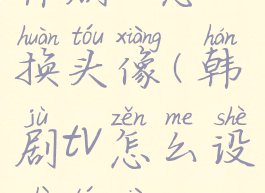 huàn tóu xiàng hán
换头像(韩
jù zěn me shè
剧tv怎么设